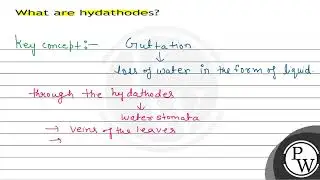 What are hydathodes?
Key concept:- Guttation
↓
loss of water in the form of liquid
through the hydathodes
↓
water stomata
→ veins of the leaves
→
PW